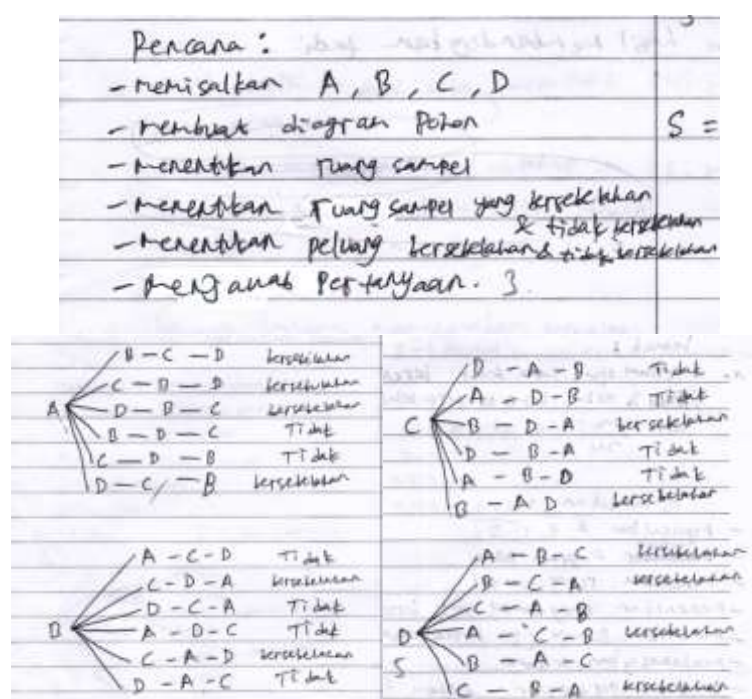 Rencana :
- memisalkan A, B, C, D
- membuat diagram Pohon
S =
- menentukan ruang sampel
- menentukan ruang sampel yang bersebelahan & tidak bersebelahan
- menentukan peluang bersebelahan & tidak bersebelahan
- menjawab Pertanyaan. 3.
A
B - C - D bersebelahan
C - B - D bersebelahan
D - B - C bersebelahan
B - D - C Tidak
C - D - B Tidak
D - C - B bersebelahan
B
A - C - D Tidak
C - D - A bersebelahan
D - C - A Tidak
A - D - C Tidak
C - A - D bersebelahan
D - A - C Tidak
C
D - A - B Tidak
A - D - B Tidak
B - D - A bersebelahan
D - B - A Tidak
A - B - D Tidak
B - A D bersebelahan
D
A - B - C bersebelahan
B - C - A bersebelahan
C - A - B
A - C - B bersebelahan
B - A - C
C - B - A bersebelahan
S